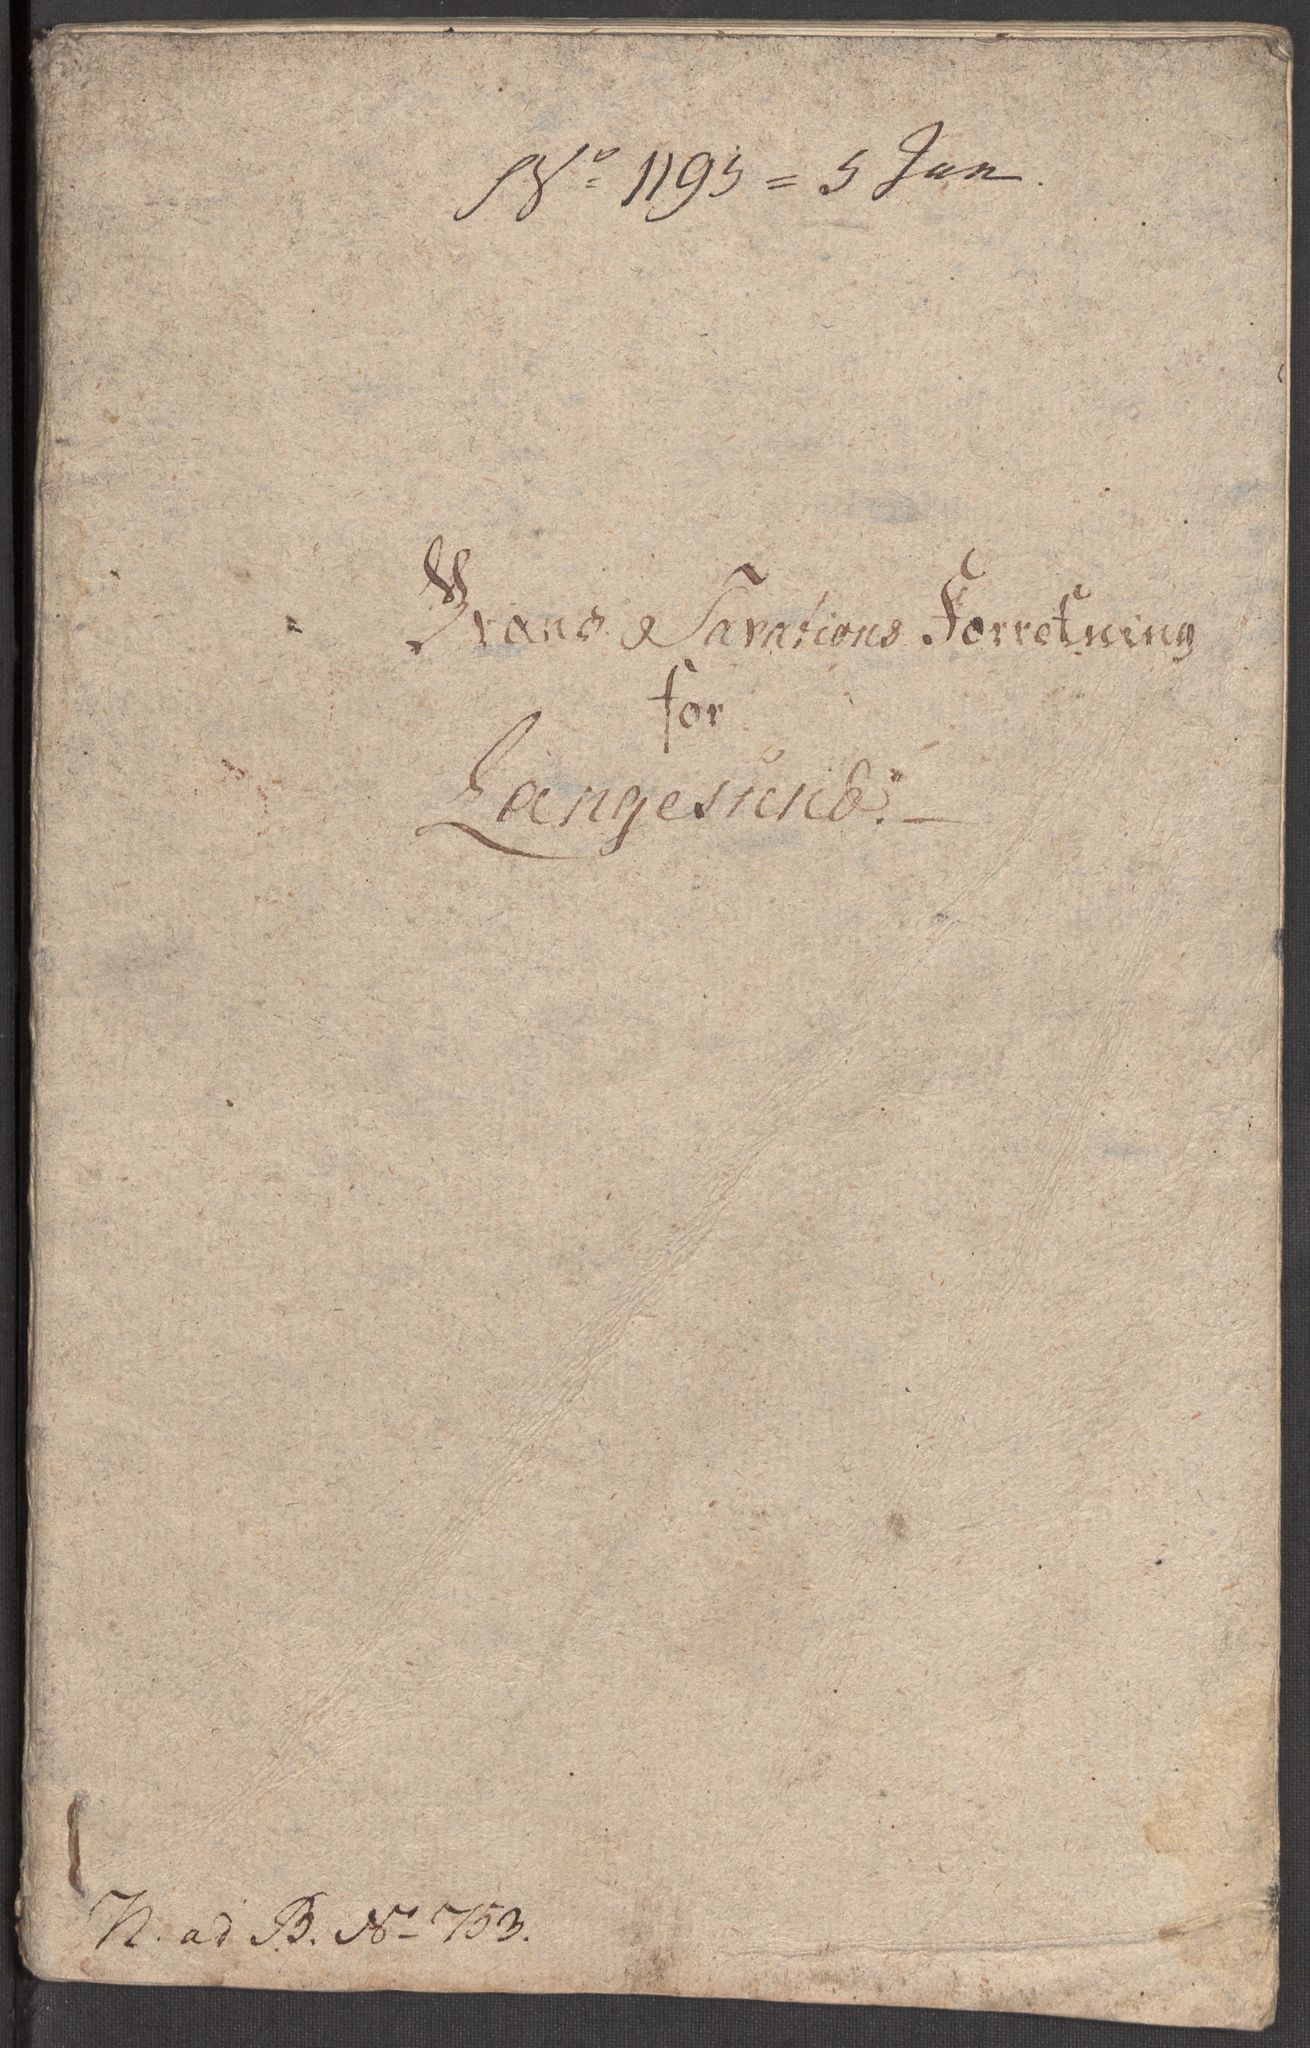 No 1195 = 5 Jun.
Brand Taxations Forretning
for
Langesund. –
N. ad B. No 753.